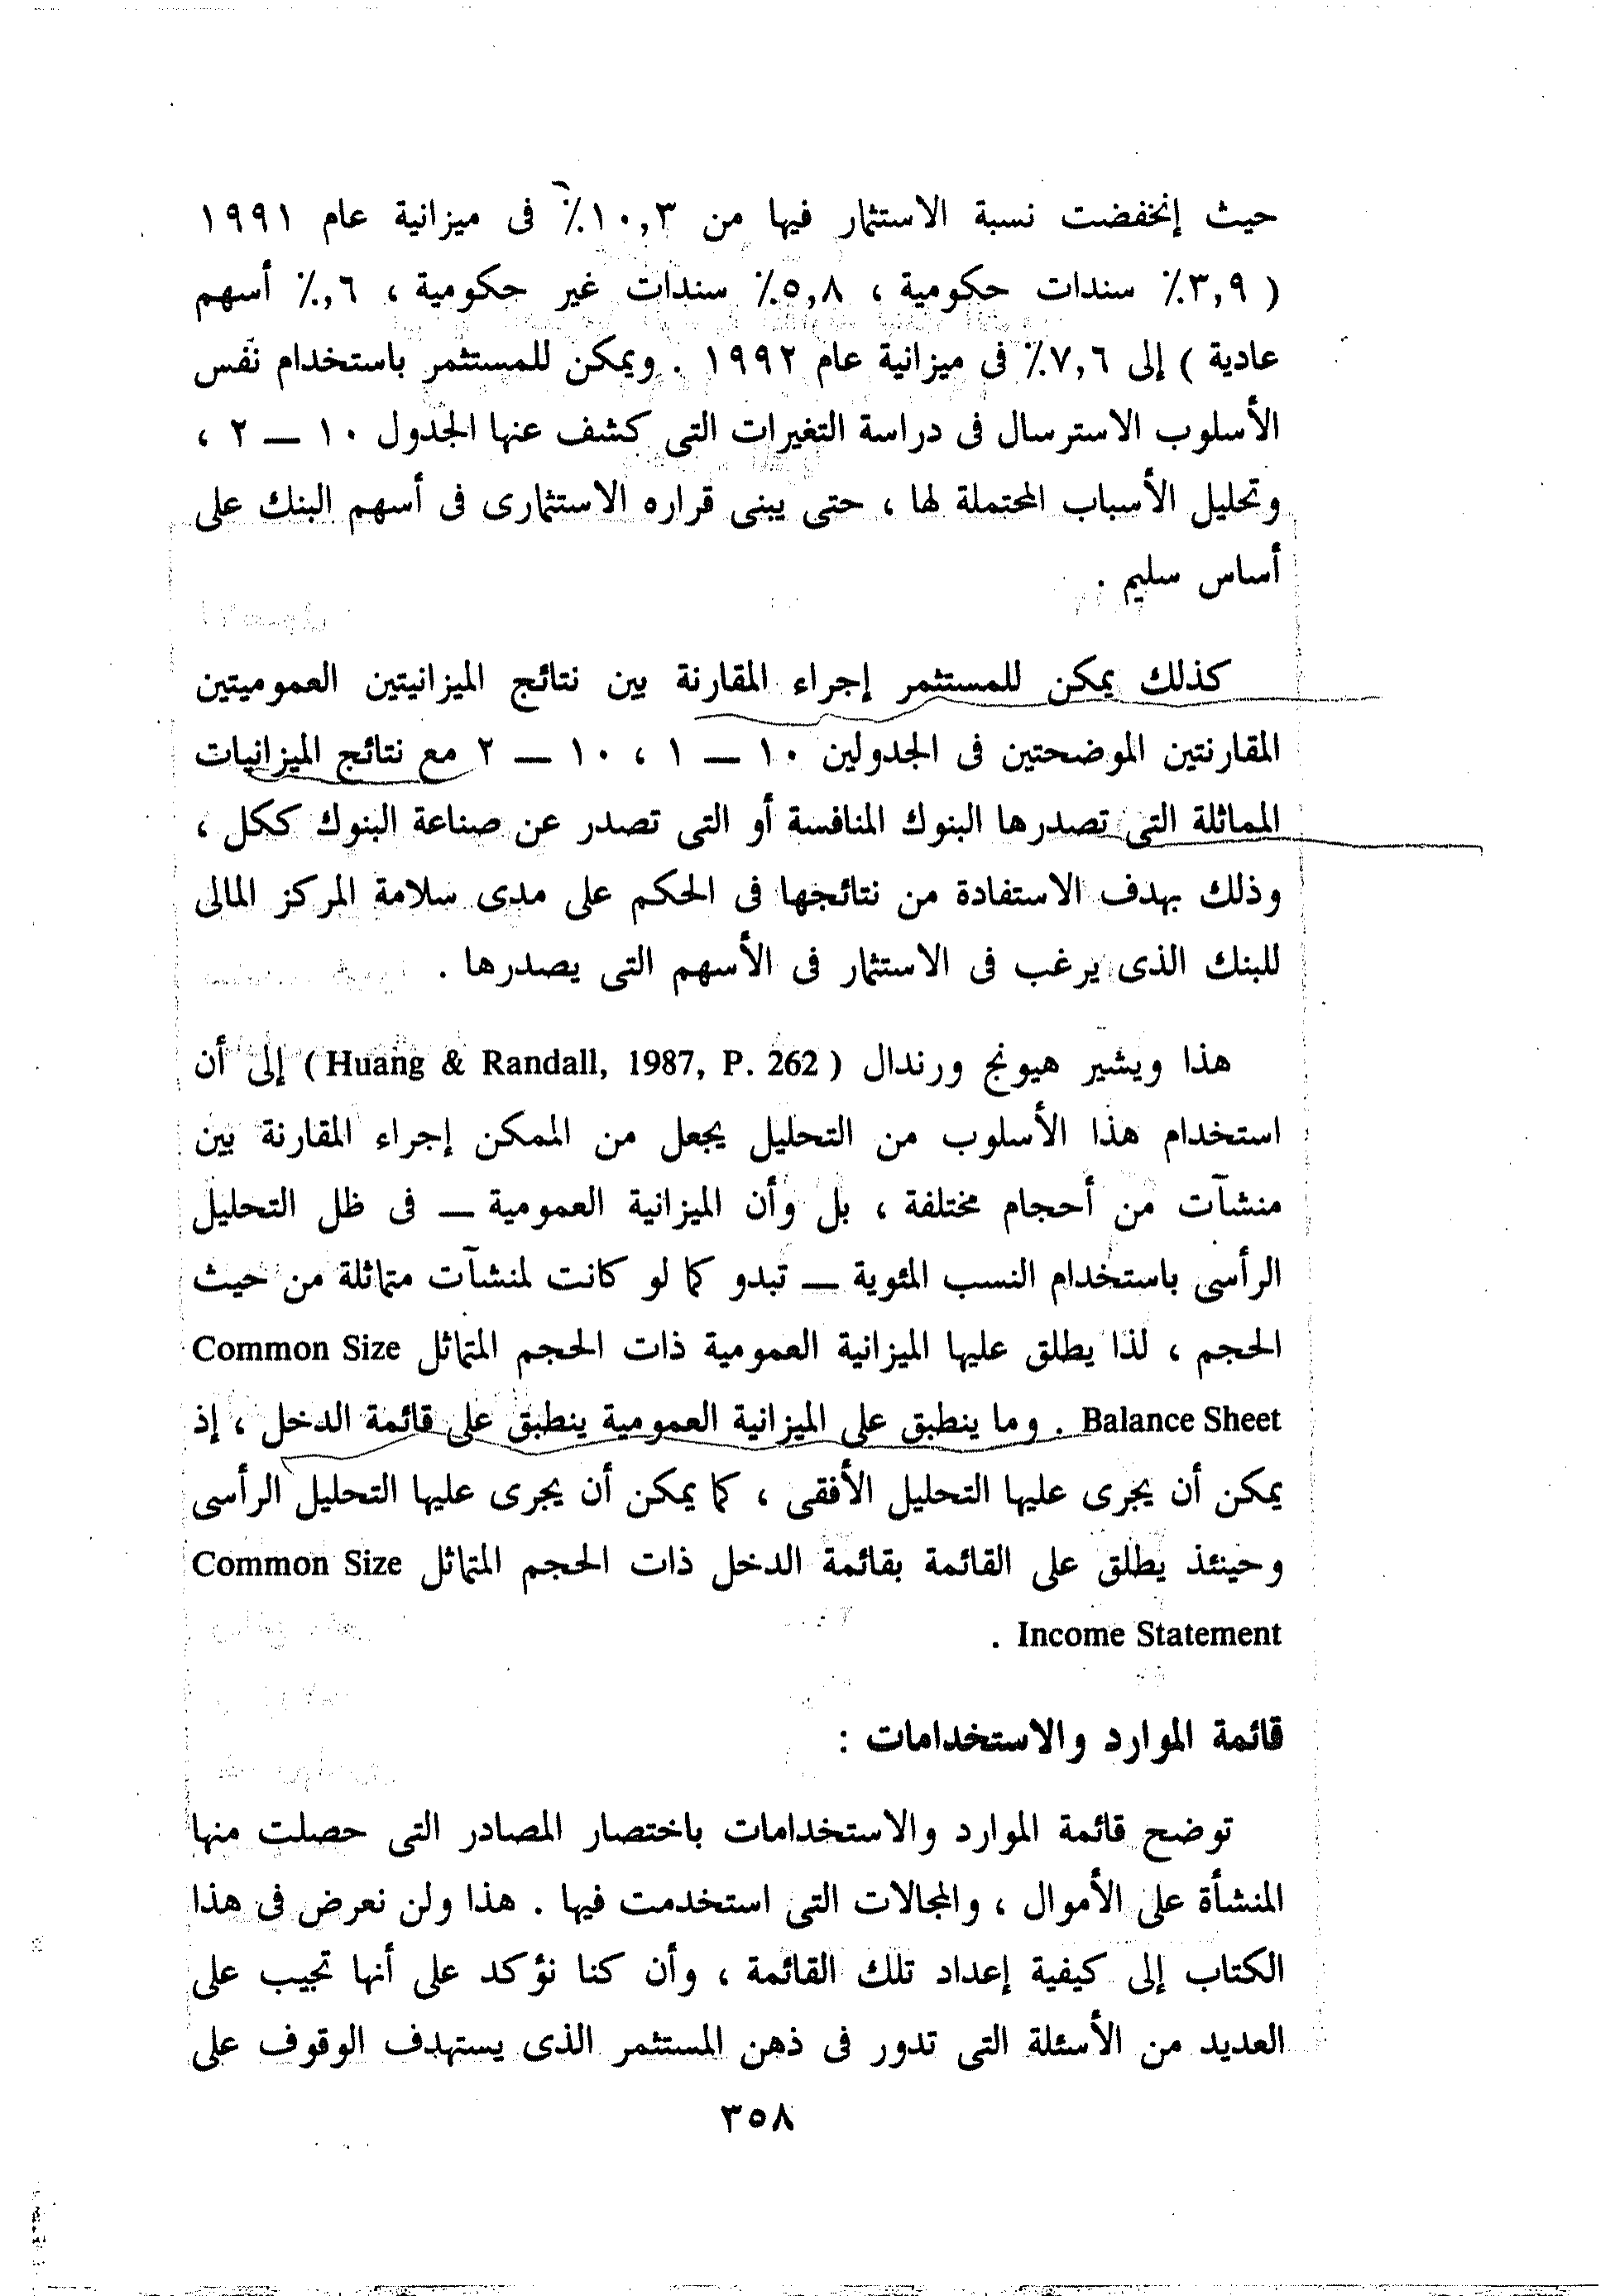 حيث إنخفضت نسبة الاستثمار فيها من ١٠,٣٪ فى ميزانية عام ١٩٩١
( ٣,٩٪ سندات حكومية ، ٥,٨٪ سندات غير حكومية ، ٦,٪ أسهم
عادية ) إلى ٧,٦٪ فى ميزانية عام ١٩٩٢ . ويمكن للمستثمر باستخدام نفس
الأسلوب الاسترسال فى دراسة التغيرات التى كشف عنها الجدول ١٠ — ٢ ،
وتحليل الأسباب المحتملة لها ، حتى يبنى قراره الاستثمارى فى أسهم البنك على
أساس سليم .
كذلك يمكن للمستثمر إجراء المقارنة بين نتائج الميزانيتين العموميتين
المقارنتين الموضحتين فى الجدولين ١٠ — ١ ، ١٠ — ٢ مع نتائج الميزانيات
المماثلة التى تصدرها البنوك المنافسة أو التى تصدر عن صناعة البنوك ككل ،
وذلك بهدف الاستفادة من نتائجها فى الحكم على مدى سلامة المركز المالى
للبنك الذى يرغب فى الاستثمار فى الأسهم التى يصدرها .
هذا ويشير هيونج ورندال ( Huang & Randall, 1987, P. 262 ) إلى أن
استخدام هذا الأسلوب من التحليل يجعل من الممكن إجراء المقارنة بين
منشآت من أحجام مختلفة ، بل وأن الميزانية العمومية — فى ظل التحليل
الرأسى باستخدام النسب المئوية — تبدو كما لو كانت لمنشآت متماثلة من حيث
الحجم ، لذا يطلق عليها الميزانية العمومية ذات الحجم المتماثل Common Size
Balance Sheet . وما ينطبق على الميزانية العمومية ينطبق على قائمة الدخل ، إذ
يمكن أن يجرى عليها التحليل الأفقى ، كما يمكن أن يجرى عليها التحليل الرأسى
وحينئذ يطلق على القائمة بقائمة الدخل ذات الحجم المتماثل Common Size
Income Statement .
قائمة الموارد والاستخدامات :
توضح قائمة الموارد والاستخدامات باختصار المصادر التى حصلت منها
المنشأة على الأموال ، والمجالات التى استخدمت فيها . هذا ولن نعرض فى هذا
الكتاب إلى كيفية إعداد تلك القائمة ، وأن كنا نؤكد على أنها تجيب على
العديد من الأسئلة التى تدور فى ذهن المستثمر الذى يستهدف الوقوف على
٣٥٨